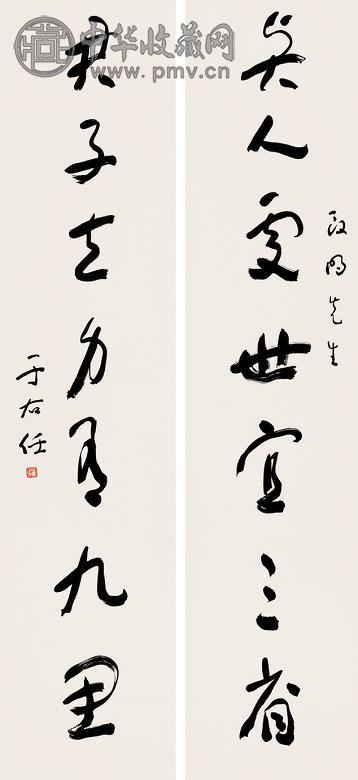 中华收藏网
www.pmv.cn
明先生
人處世宜三省
君子立身有九思
于右任